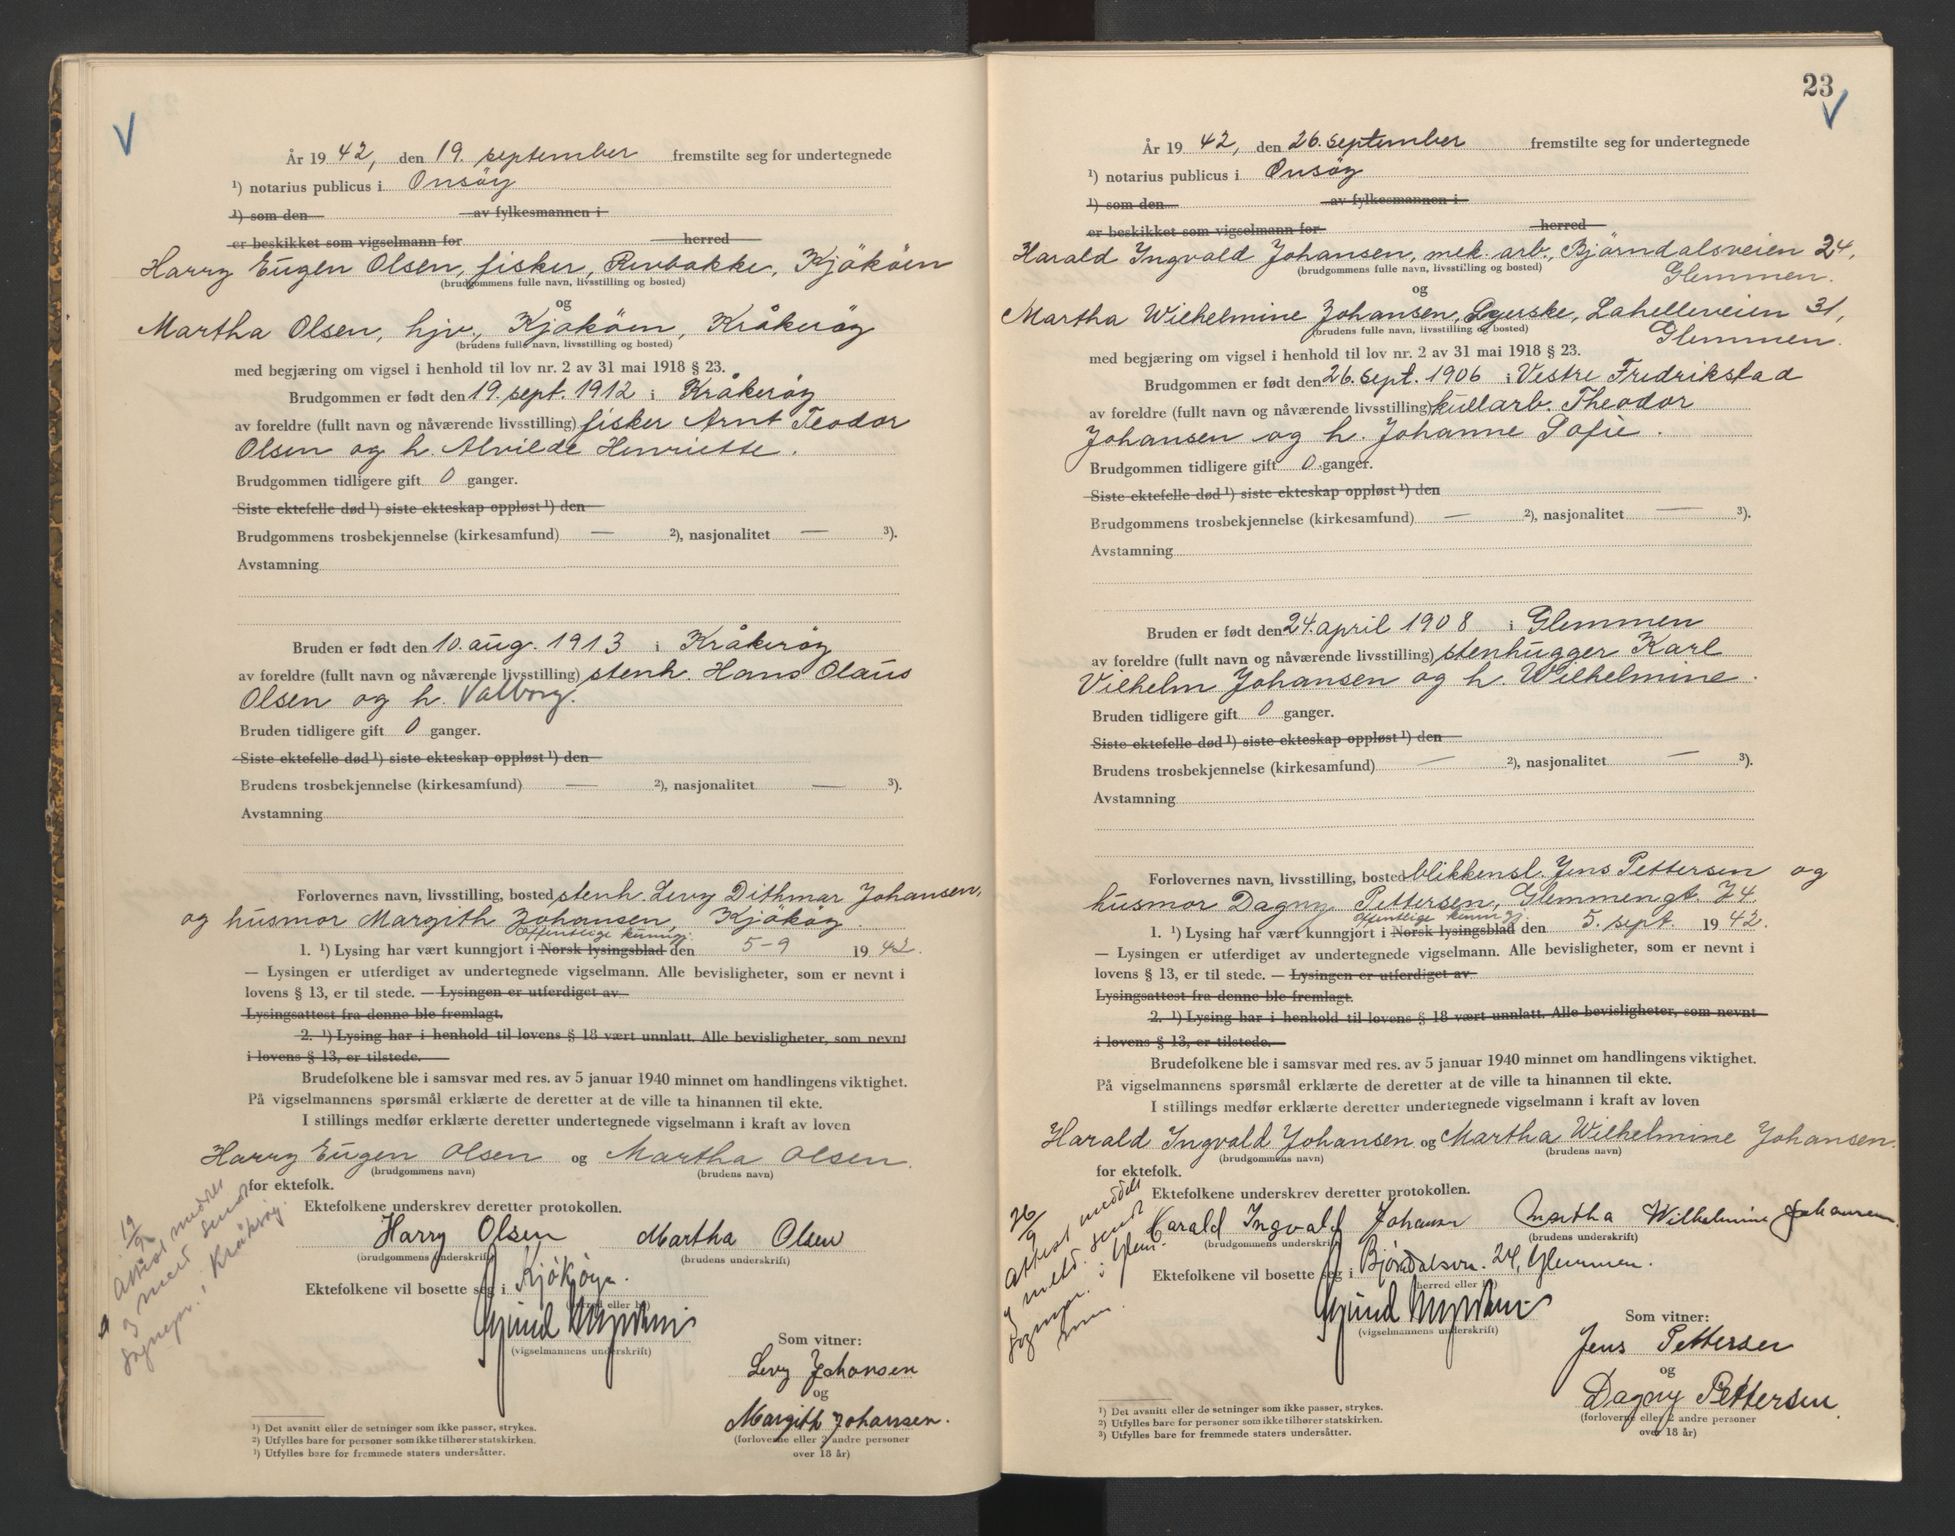 År 19 42, den 19. september fremstilte seg for undertegnede
¹) notarius publicus i Onsöy
¹) som den av fylkesmannen i
er beskikket som vigselmann for herred
Harry Eugen Olsen, fisker, Revbakke, Kjököen
(brudgommens fulle navn, livsstilling og bosted)
og
Martha Olsen, hjv., Kjököen, Kråkeröy
(brudens fulle navn, livsstilling og bosted)
med begjæring om vigsel i henhold til lov nr. 2 av 31 mai 1918 § 23.
Brudgommen er født den 19. sept. 1912 i Kråkeröy
av foreldre (fullt navn og nåværende livsstilling) fisker Arnt Teodor
Olsen og h. Alvilde Henriette.
Brudgommen tidligere gift 0 ganger.
Siste ektefelle død ¹) siste ekteskap oppløst ¹) den
Brudgommens trosbekjennelse (kirkesamfund) — ²), nasjonalitet — ³).
Avstamning
Bruden er født den 10. aug. 1913 i Kråkeröy
av foreldre (fullt navn og nåværende livsstilling) stenh. Hans Olaus
Olsen og h. Valborg.
Bruden tidligere gift 0 ganger.
Siste ektefelle død ¹) siste ekteskap oppløst ¹) den
Brudens trosbekjennelse (kirkesamfund) — ²), nasjonalitet — ³).
Avstamning
Forlovernes navn, livsstilling, bosted stenh. Levy Dithmar Johansen,
og husmor Margith Johansen, Kjököy.
offentlige kunngj.
1. ¹) Lysing har vært kunngjort i Norsk lysingsblad den 5-9 19 42.
— Lysingen er utferdiget av undertegnede vigselmann. Alle bevisligheter, som er nevnt i
lovens § 13, er til stede. — Lysingen er utferdiget av
Lysingsattest fra denne ble fremlagt.
2. ¹) Lysing har i henhold til lovens § 18 vært unnlatt. Alle bevisligheter, som nevnt
i lovens § 13, er tilstede.
Brudefolkene ble i samsvar med res. av 5 januar 1940 minnet om handlingens viktighet.
På vigselmannens spørsmål erklærte de deretter at de ville ta hinannen til ekte.
I stillings medfør erklærte deretter undertegnede vigselmann i kraft av loven
Harry Eugen Olsen og Martha Olsen.
(brudgommens navn) (brudens navn)
for ektefolk.
Ektefolkene underskrev deretter protokollen.
Harry Olsen Martha Olsen
(brudgommens underskrift) (brudens underskrift)
Ektefolkene vil bosette seg i Kjøkøya.
(herred eller by)
(vigselmannens underskrift)
Som vitner:
Levy Johansen
og
Margith Johansen.
(forloverne eller 2 andre personer
over 18 år)
19/9 Attest meddelt
og meld. sendt
sognepr. i Kråkerøy.
¹) Det avsnitt eller de setninger som ikke passer, strykes.
²) Utfylles bare for personer som ikke tilhører statskirken.
³) Utfylles bare for fremmede staters undersåtter.
23
År 19 42, den 26. september fremstilte seg for undertegnede
¹) notarius publicus i Onsöy
¹) som den av fylkesmannen i
er beskikket som vigselmann for herred
Harald Ingvald Johansen, mek. arb., Björndalsveien 24,
(brudgommens fulle navn, livsstilling og bosted) Glemmen.
og
Martha Wilhelmine Johansen, syerske, Lahelleveien 31,
(brudens fulle navn, livsstilling og bosted) Glemmen.
med begjæring om vigsel i henhold til lov nr. 2 av 31 mai 1918 § 23.
Brudgommen er født den 26. sept. 1906 i Vestre Fredrikstad
av foreldre (fullt navn og nåværende livsstilling) kullarb. Theodor
Johansen og h. Johanne Sofie.
Brudgommen tidligere gift 0 ganger.
Siste ektefelle død ¹) siste ekteskap oppløst ¹) den
Brudgommens trosbekjennelse (kirkesamfund) — ²), nasjonalitet — ³).
Avstamning
Bruden er født den 24. april 1908 i Glemmen
av foreldre (fullt navn og nåværende livsstilling) stenhugger Karl
Vilhelm Johansen og h. Wilhelmine.
Bruden tidligere gift 0 ganger.
Siste ektefelle død ¹) siste ekteskap oppløst ¹) den
Brudens trosbekjennelse (kirkesamfund) — ²), nasjonalitet — ³).
Avstamning
Forlovernes navn, livsstilling, bosted blikkensl. Jens Pettersen og
husmor Dagny Pettersen, Glemmengt. 74.
offentlige kunngj.
1. ¹) Lysing har vært kunngjort i Norsk lysingsblad den 5. sept. 19 42.
— Lysingen er utferdiget av undertegnede vigselmann. Alle bevisligheter, som er nevnt i
lovens § 13, er til stede. — Lysingen er utferdiget av
Lysingsattest fra denne ble fremlagt.
2. ¹) Lysing har i henhold til lovens § 18 vært unnlatt. Alle bevisligheter, som nevnt
i lovens § 13, er tilstede.
Brudefolkene ble i samsvar med res. av 5 januar 1940 minnet om handlingens viktighet.
På vigselmannens spørsmål erklærte de deretter at de ville ta hinannen til ekte.
I stillings medfør erklærte deretter undertegnede vigselmann i kraft av loven
Harald Ingvald Johansen og Martha Wilhelmine Johansen.
(brudgommens navn) (brudens navn)
for ektefolk.
Ektefolkene underskrev deretter protokollen.
Harald Ingvald Johansen Martha Wilhelmine Johansen.
(brudgommens underskrift) (brudens underskrift)
Ektefolkene vil bosette seg i Bjørndalsvn. 24, Glemmen.
(herred eller by)
(vigselmannens underskrift)
Som vitner:
Jens Pettersen
og
Dagny Pettersen.
(forloverne eller 2 andre personer
over 18 år)
26/9 Attest meddelt
og meld. sendt
sognepr. i Glem-
men.
¹) Det avsnitt eller de setninger som ikke passer, strykes.
²) Utfylles bare for personer som ikke tilhører statskirken.
³) Utfylles bare for fremmede staters undersåtter.